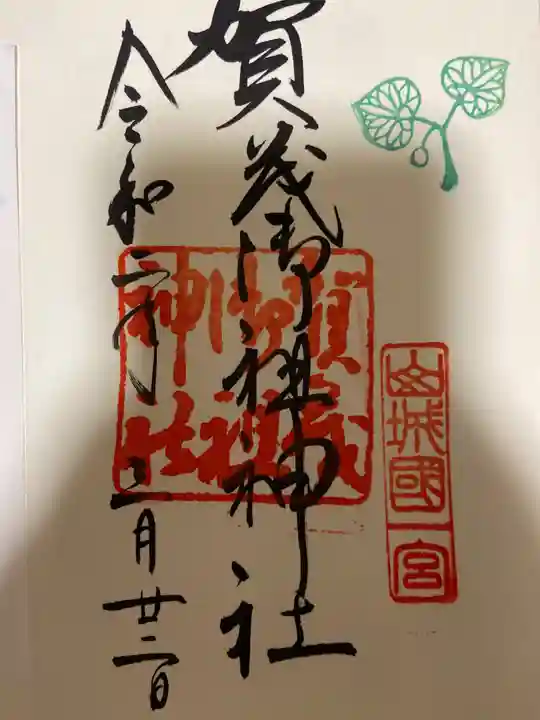 山城國一宮
賀茂御祖神社
賀茂御祖神社
令和二年三月廿二日